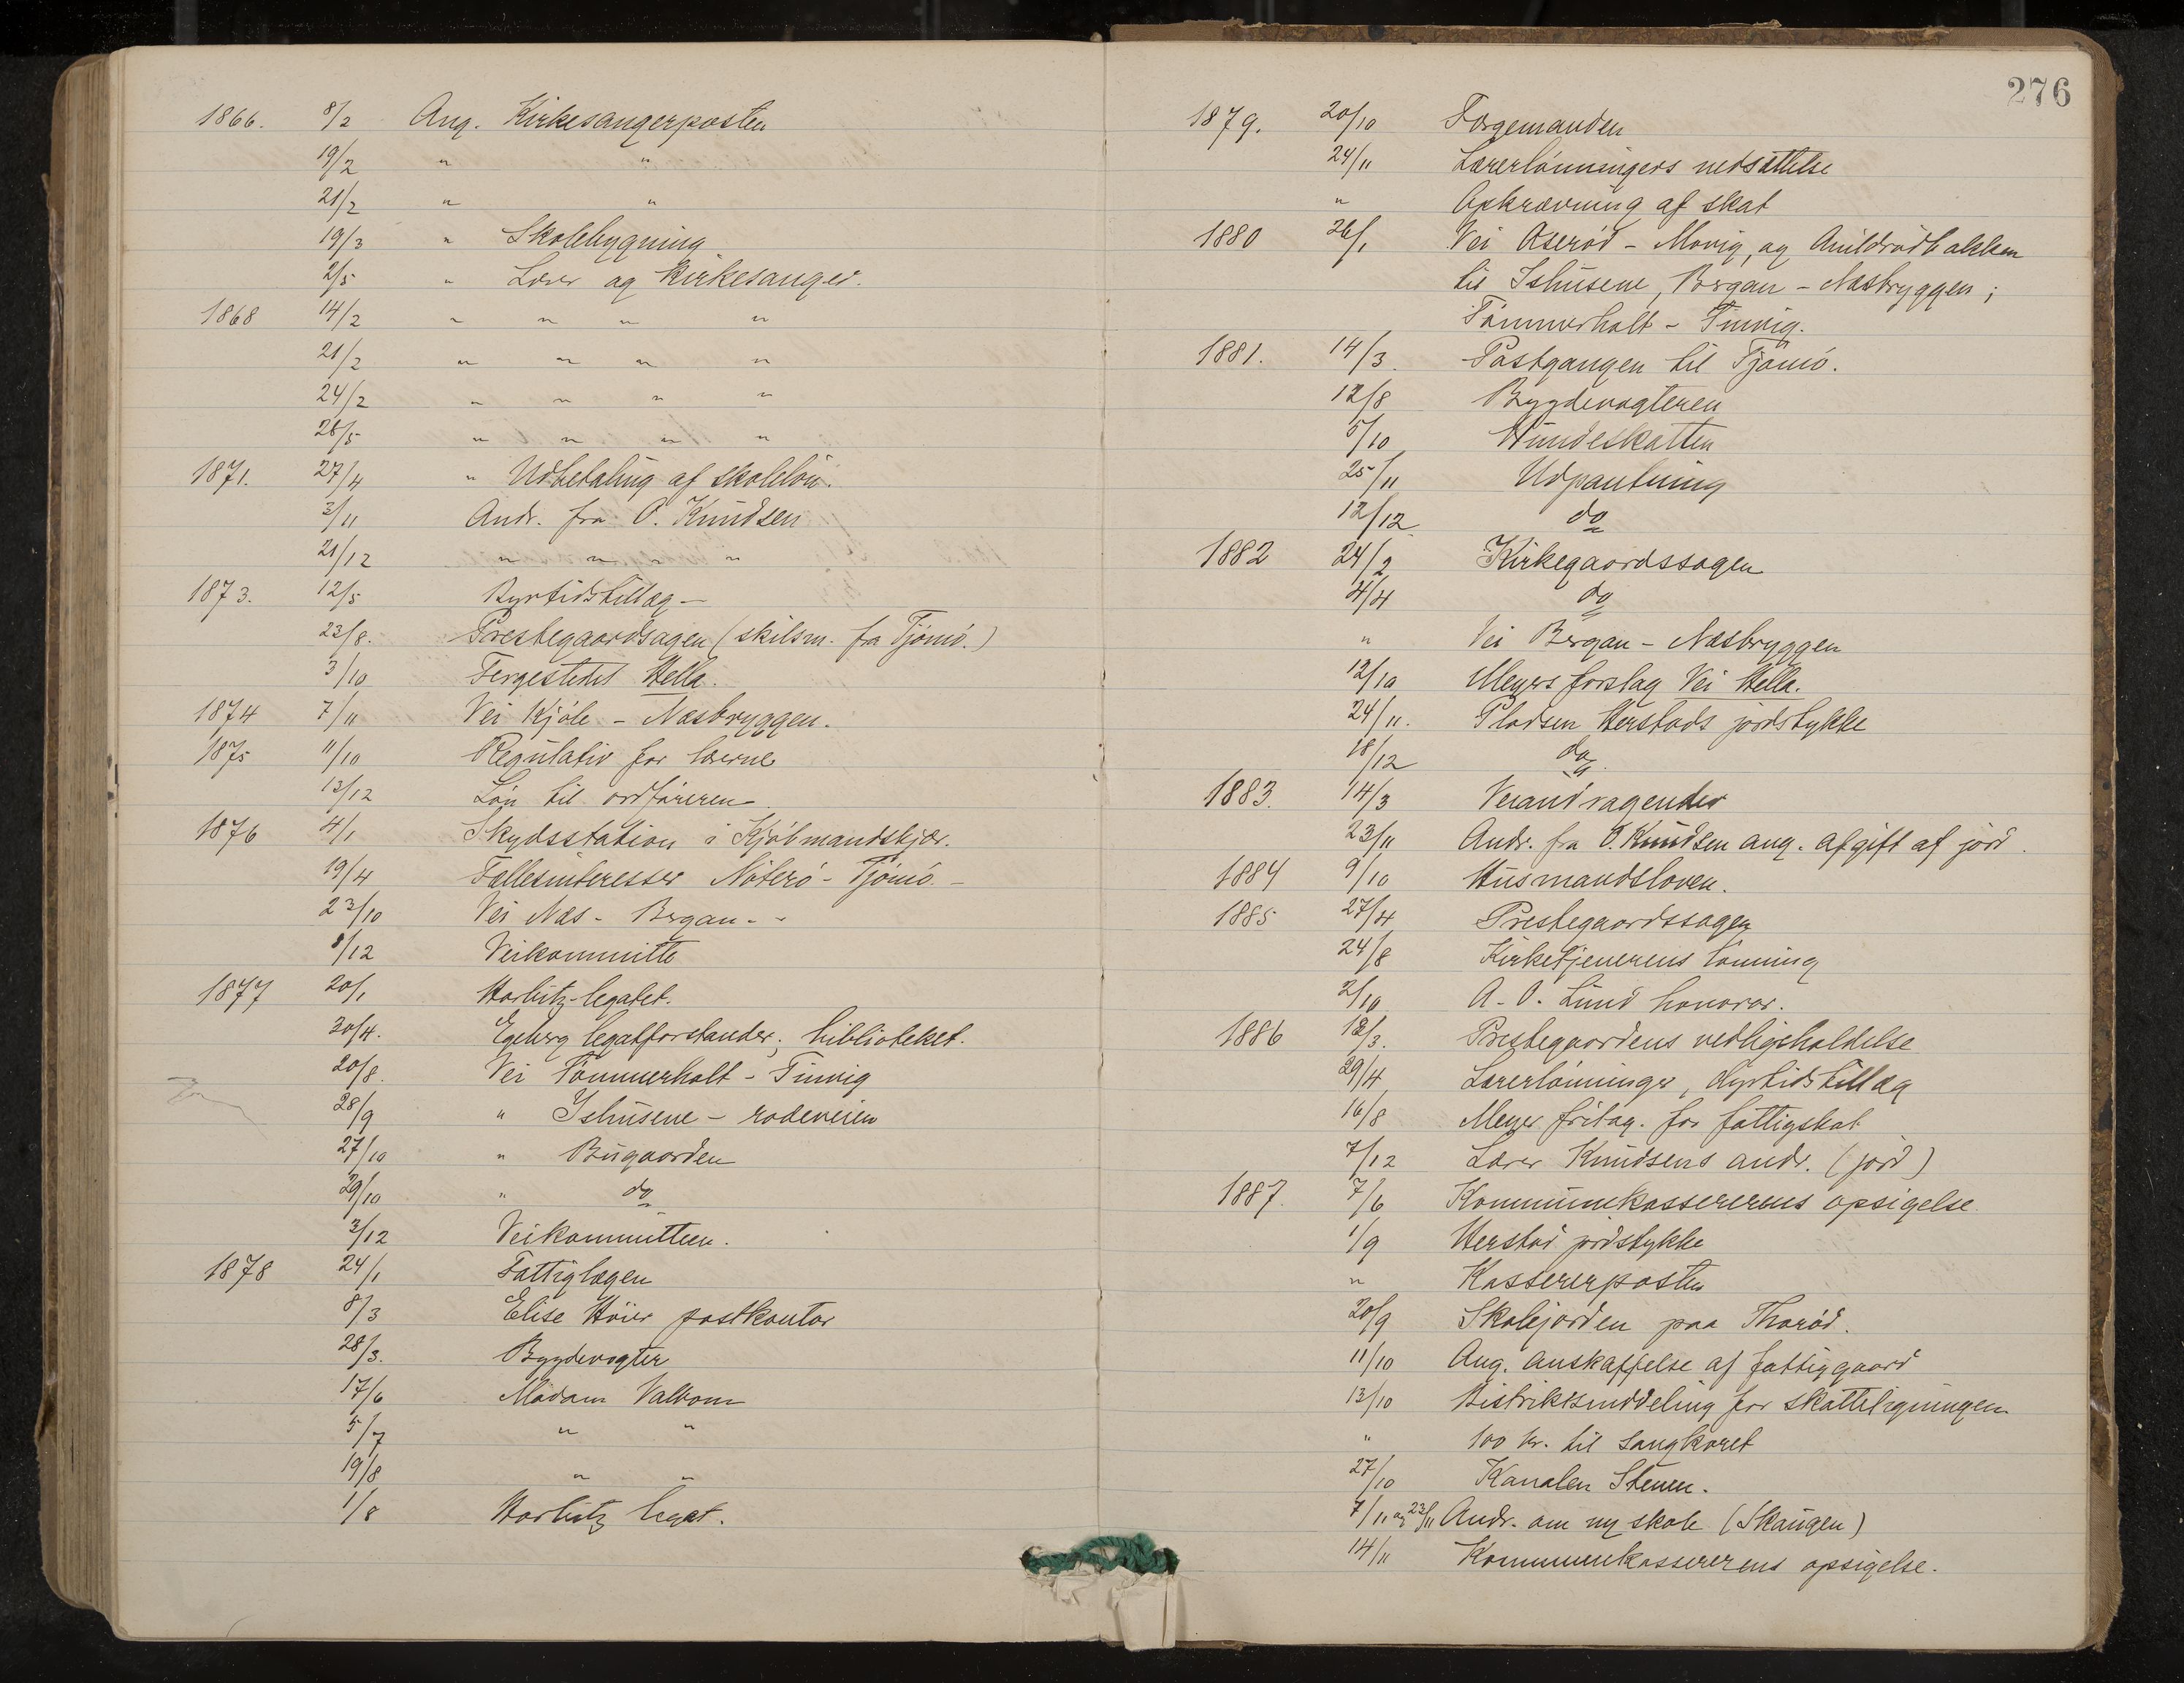 1866. 8/2 Ang. Kirkesangerposten
19/2 " "
21/2 " "
19/3 " Skolebygning
2/5 " Lærer og Kirkesanger.
1868 14/2 " " " "
21/2 " " " "
24/2 " " " "
26/5 " " " "
1871. 27/4 " Udbetaling af skoleløn.
3/11 Andr. fra O. Knudsen
21/12 " " " "
1873. 12/5 Dyrtidstillæg —
23/8. Prestegaardsagen (skilsm. fra Tjømø.)
3/10 Fergestedet Hella.
1874 7/11 Vei Kjøle – Næsbryggen.
1875 11/10 Regulativ for lærerne
13/12 Løn til ordføreren
1876 4/1 Skydsstation i Kjøbmandskjær.
19/4 Fællesinteresser Nøterø – Tjømø. –
23/10 Vei Næs – Bergan –
8/12 Veikommitte
1877 20/1 Horbitz-legatet.
30/4. Egeberg legatforstander; biblioteket.
20/8. Vei Tømmerholt – Tinvig
28/9 " Ishusene – rodeveien
27/10 " Bugaarden
29/10 " do
3/12 Veikommitteen.
1878 24/1 Fattiglægen
8/3 Elise Høier postkontor
28/3. Bygdevogter
17/6 Madam Valbom
5/7 " "
19/8 " "
1/8 Horbitz legat.
276
1879. 20/10 Færgemanden
24/11 Lærerlønningers nedsættelse
" Opkrævning af skat
1880 26/1 Vei Oserød – Movig, og Anildrødbakken
til Ishusene, Bergan – Næsbryggen;
Tømmerholt – Tinvig.
1881. 14/3. Postgangen til Tjømø.
12/8 Bygdevogteren
5/10 Hundeskatten
25/11 Udpantning
12/12 do
1882 24/2 Kirkegaardssagen
4/4 do
" Vei Bergan – Næsbryggen
12/10 Meyers forslag Vei Hella.
24/11. Pladsen Herstads jordstykke
18/12 do
1883. 14/3 Veiandragender
23/11 Andr. fra O. Knudsen ang. afgift af jord.
1884 9/10 Husmandsloven.
1885 27/4 Prestegaardssagen
24/8 Kirketjenerens lønning
2/10 A. O. Lund honorar.
1886 12/3. Prestegaardens vedligeholdelse
29/4 Lærerlønninger, dyrtidstillæg
16/8 Meyer fritag. for fattigskat
7/12 Lærer Knudsens andr. (jord)
1887. 7/6 Kommunekassererens opsigelse.
1/9 Herstad jordstykke
" Kassererposten
20/9 Skolejorden paa Thorød.
11/10 Ang. anskaffelse af fattiggaard
13/10 Distriktsinddeling for skatteligningen
" 100 kr. til sangkoret
27/10 Kanalen Stenen.
7/11 og 23/11 Andr. om ny skole (Skaugen)
14/11 Kommunekassererens opsigelse.